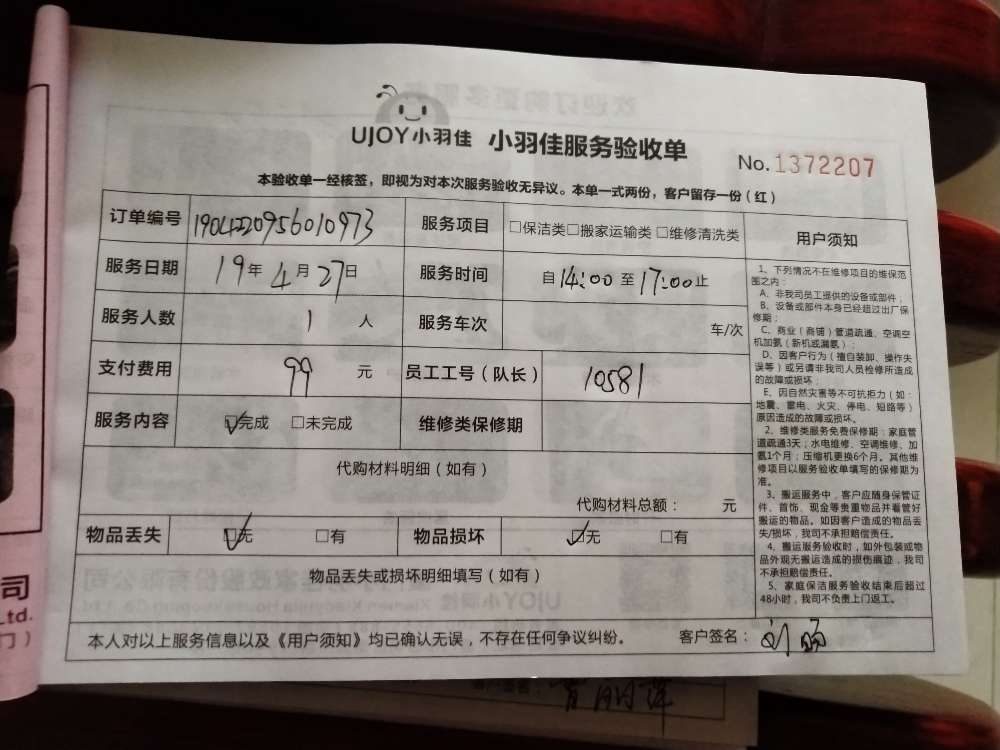 UJOY小羽佳 小羽佳服务验收单
No.1372207
本验收单一经核签，即视为对本次服务验收无异议。本单一式两份，客户留存一份（红）
订单编号 190422095601​0973 服务项目 □保洁类□搬家运输类 □维修清洗类
服务日期 19年4月27日 服务时间 自14:00至17:00止
服务人数 1 人 服务车次 车/次
支付费用 99 元 员工工号（队长） 10581
服务内容 ☑完成 □未完成 维修类保修期
代购材料明细（如有）
代购材料总额： 元
物品丢失 ☑无 □有 物品损坏 ☑无 □有
物品丢失或损坏明细填写（如有）
用户须知
1、下列情况不在维修项目的维保范
围之内：
A、非我司员工提供的设备或部件；
B、设备或部件本身已经超过出厂保
修期；
C、商业（商铺）管道疏通、空调空
机加氨（新机或漏氨）；
D、因客户行为（擅自装卸、操作失
误等）或另请非我司人员检修所造成
的故障或损坏；
E、因自然灾害等不可抗拒力（如：
地震、雷电、火灾、停电、短路等）
原因造成的故障或损坏。
2、维修类服务免费保修期：家庭管
道疏通3天；水电维修、空调维修、加
氨1个月；压缩机更换6个月。其他维
修项目以服务验收单填写的保修期为
准。
3、搬运服务中，客户应随身保管证
件、首饰、现金等贵重物品并看管好
搬运的物品。如因客户造成的物品丢
失/损坏，我司不承担赔偿责任。
4、搬运服务验收时，如外包装或物
品外观无搬运造成的损伤痕迹，我司
不承担赔偿责任。
5、家庭保洁服务验收结束后超过
48小时，我司不负责上门返工。
本人对以上服务信息以及《用户须知》均已确认无误，不存在任何争议纠纷。 客户签名：刘
司
Ltd.
门）